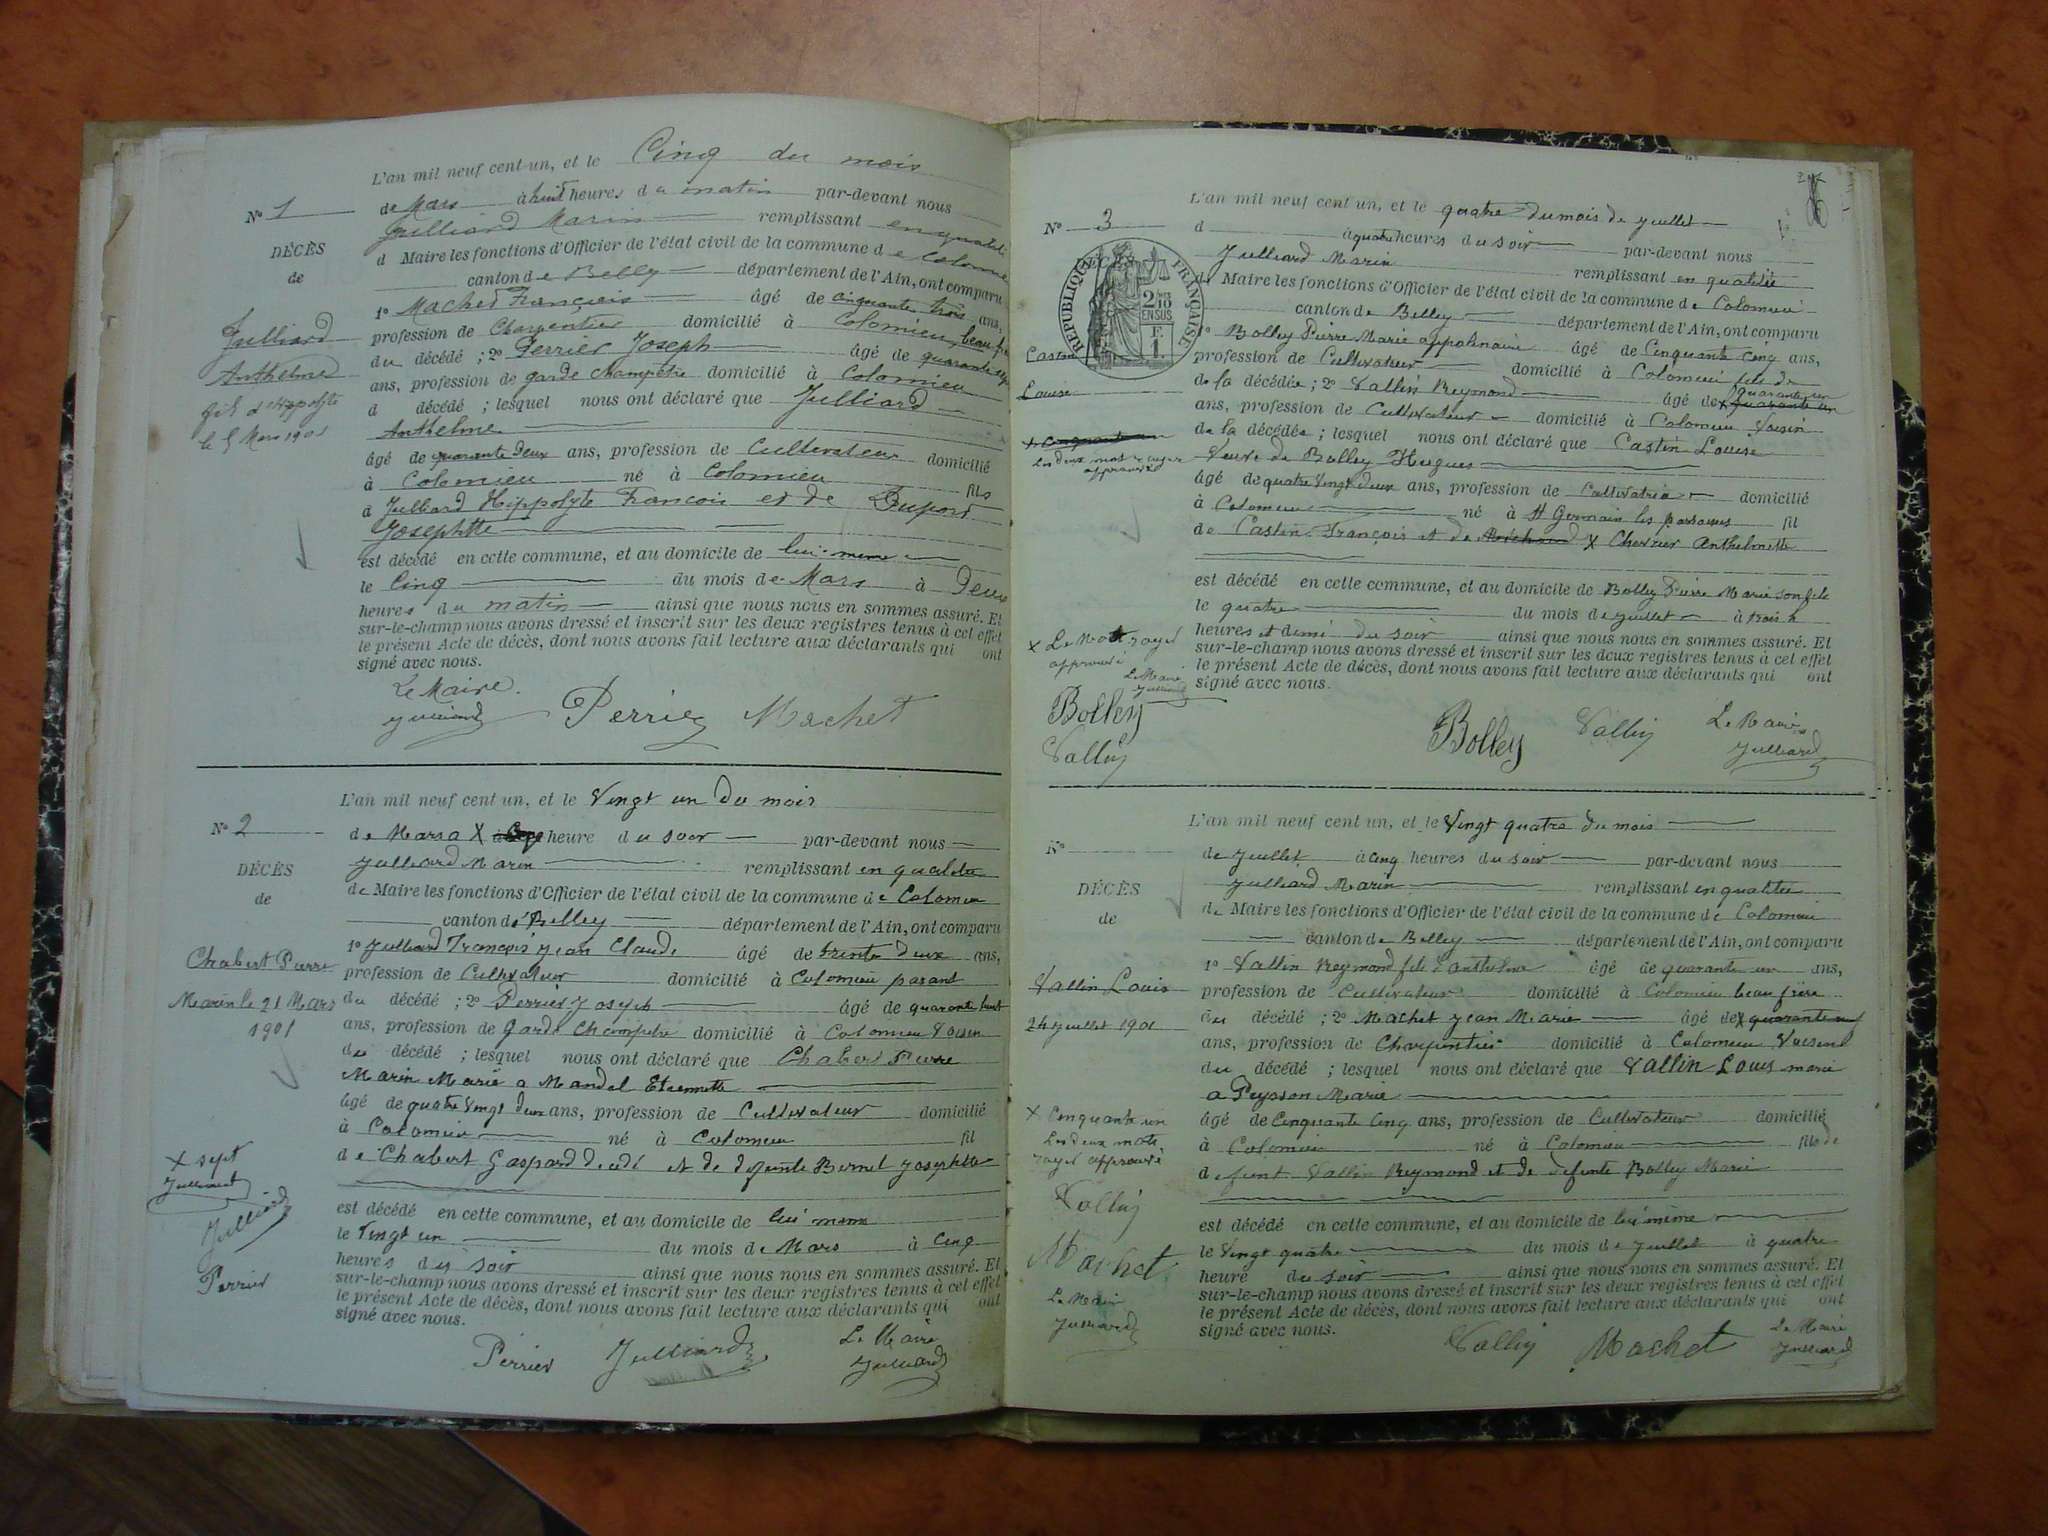 L'an mil neuf cent un, et le Cinq du mois
N° 1
de Mars à huit heures du matin par-devant nous
Julliard Marin remplissant en qualité
DÉCÈS
d Maire les fonctions d'Officier de l'état civil de la commune de Colomieu
de
canton de Belley département de l'Ain, ont comparu
1° Machet François âgé de cinquante trois ans,
Julliard
profession de Charpentier domicilié à Colomieu, beau
Anthelme
du décédé ; 2° Perrier Joseph âgé de quarante
fils d'Hippolyte
ans, profession de garde champêtre domicilié à Colomieu
le 5 Mars 1901
d décédé ; lesquel nous ont déclaré que Julliard
Anthelme
âgé de quarante deux ans, profession de Cultivateur domicilié
à Colomieu né à Colomieu fils
à Julliard Hippolyte François et de Dupont
Josephtte
est décédé en cette commune, et au domicile de lui-même
le Cinq du mois de Mars à Deux
heures du matin ainsi que nous nous en sommes assuré. Et
sur-le-champ nous avons dressé et inscrit sur les deux registres tenus à cet effet
le présent Acte de décès, dont nous avons fait lecture aux déclarants qui ont
signé avec nous.
Le Maire
Julliard Perrier Machet
L'an mil neuf cent un, et le Vingt un du mois
N° 2
de Mars a X heure du soir par-devant nous
Julliard Marin remplissant en qualitée
DÉCÈS
de Maire les fonctions d'Officier de l'état civil de la commune de Colomieu
de
canton de Belley département de l'Ain, ont comparu
1° Julliard François Jean Claude âgé de trente deux ans,
Chabert Pierre
profession de Cultivateur domicilié à Colomieu parant
Marin le 21 Mars
du décédé ; 2° Perrier Joseph âgé de quarante huit
1901
ans, profession de Garde Champetre domicilié à Colomieu Voisin
du décédé ; lesquel nous ont déclaré que Chabert Pierre
Marin Marié a Mandal Etiennette
âgé de quatre Vingt deux ans, profession de Cultivateur domicilié
à Colomieu né à Colomieu fil
de Chabert Gaspard décédé et de défunte Bernet Josephtte
X sept
Julliard
Julliard
Perrier
est décédé en cette commune, et au domicile de lui meme
le Vingt un du mois de Mars à Cinq
heures du soir ainsi que nous nous en sommes assuré. Et
sur-le-champ nous avons dressé et inscrit sur les deux registres tenus à cet effet
le présent Acte de décès, dont nous avons fait lecture aux déclarants qui ont
signé avec nous.
Perrier Julliard Le Maire
Julliard
L'an mil neuf cent un, et le quatre du mois de Juillet
N° 3
d à quatre heures du soir par-devant nous
Julliard Marin remplissant en qualitée
RÉPUBLIQUE FRANÇAISE
2/10 EN SUS
F. 1.
de Maire les fonctions d'Officier de l'état civil de la commune de Colomieu
canton de Belley département de l'Ain, ont comparu
1° Bolley Pierre Marie appolinaire âgé de Cinquante cinq ans,
Castin
profession de Cultivateur domicilié à Colomieu fils de
Louise
de la décédée ; 2° Vallin Reymond âgé de X quarante un
ans, profession de Cultivateur domicilié à Colomieu Voisin
de la décédée ; lesquel nous ont déclaré que Castin Louise
Les deux mots rayés
approuvé
Veuve de Bolley Hugues
âgé de quatre Vingt deux ans, profession de Cultivatrice domicilié
à Colomieu né à St Germain les paroisses fil
de Castin François et de X Chevrier Anthelmette
est décédé en cette commune, et au domicile de Bolley Pierre Marie son fils
le quatre du mois de Juillet à trois h
heures et demi du soir ainsi que nous nous en sommes assuré. Et
sur-le-champ nous avons dressé et inscrit sur les deux registres tenus à cet effet
le présent Acte de décès, dont nous avons fait lecture aux déclarants qui ont
signé avec nous.
X Le Mot rayé
approuvé
Le Maire
Julliard
Bolley
Vallin
Bolley Vallin Le Maire
Julliard
L'an mil neuf cent un, et le Vingt quatre du mois
N°
de Juillet à cinq heures du soir par-devant nous
Julliard Marin remplissant en qualitée
DÉCÈS
de Maire les fonctions d'Officier de l'état civil de la commune de Colomieu
de
canton de Belley département de l'Ain, ont comparu
1° Vallin Reymond fils d'anthelme âgé de quarante un ans,
Vallin Louis
profession de Cultivateur domicilié à Colomieu beau frère
24 Juillet 1901
du décédé ; 2° Machet Jean Marie âgé de X quarante
ans, profession de Charpentier domicilié à Colomieu Voisin
du décédé ; lesquel nous ont déclaré que Vallin Louis marié
a Peysson Marie
X Cinquante un
Les deux mots
rayés approuvé
âgé de Cinquante Cinq ans, profession de Cultivateur domicilié
à Colomieu né à Colomieu fils de
défunt Vallin Reymond et de défunte Bolley Marie
Vallin
Machet
Le Maire
Julliard
est décédé en cette commune, et au domicile de lui même
le Vingt quatre du mois de Juillet à quatre
heure du soir ainsi que nous nous en sommes assuré. Et
sur-le-champ nous avons dressé et inscrit sur les deux registres tenus à cet effet
le présent Acte de décès, dont nous avons fait lecture aux déclarants qui ont
signé avec nous.
Vallin Machet Le Maire
Julliard